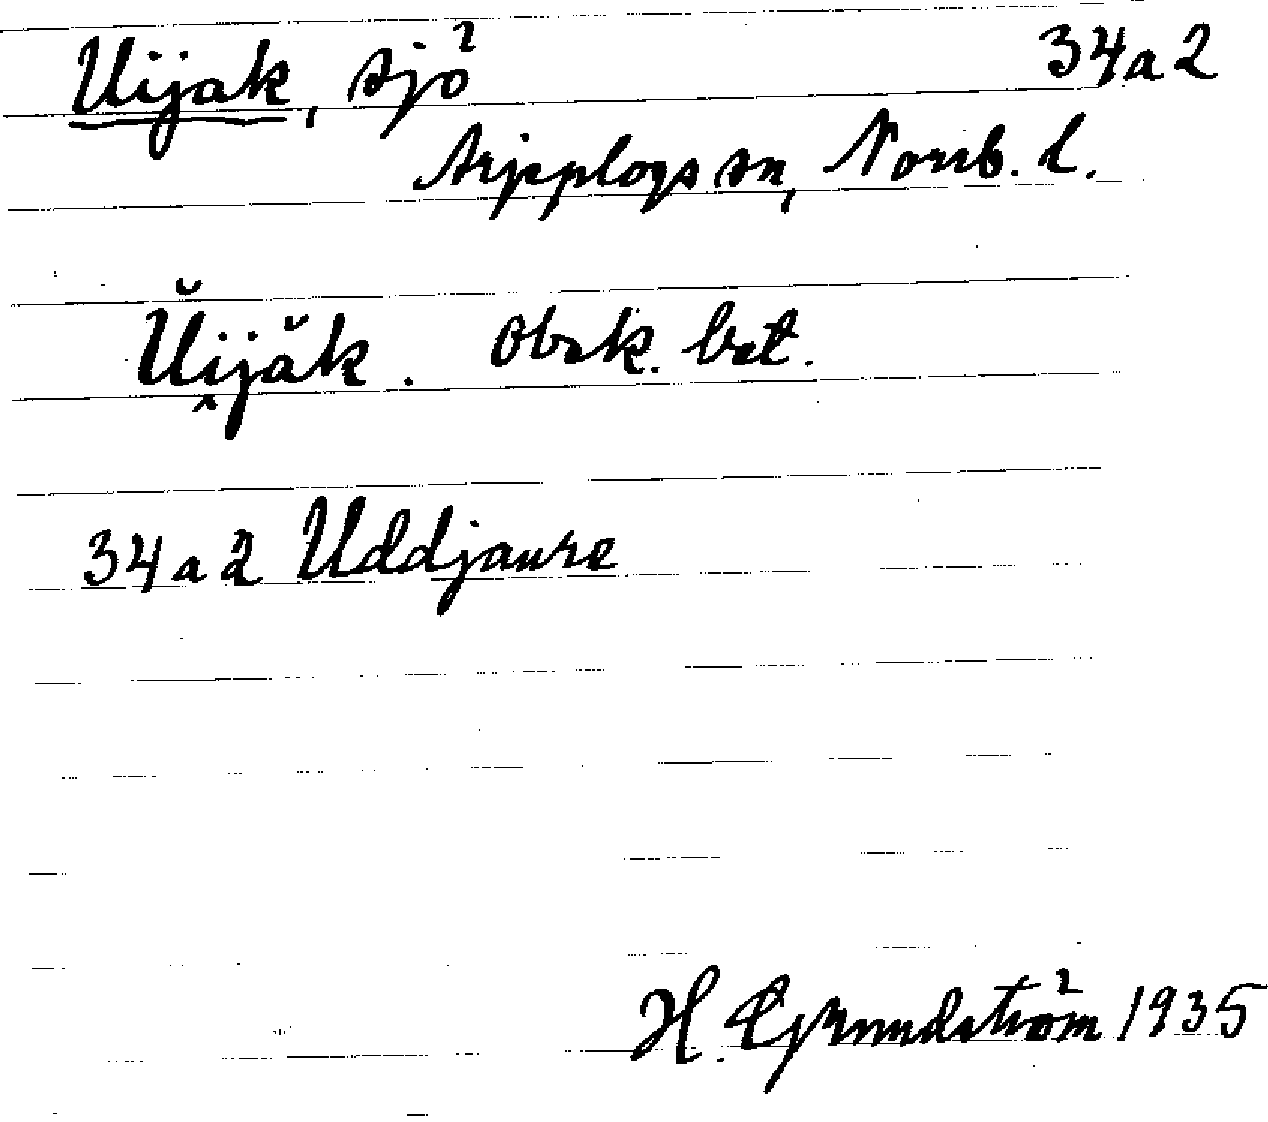 Uijak, sjö 34a2
Arjeplogs sn, Norrb. l.
Ŭi̭jăk. Obek. bet.
34a2 Uddjaure
H. Grundström 1935